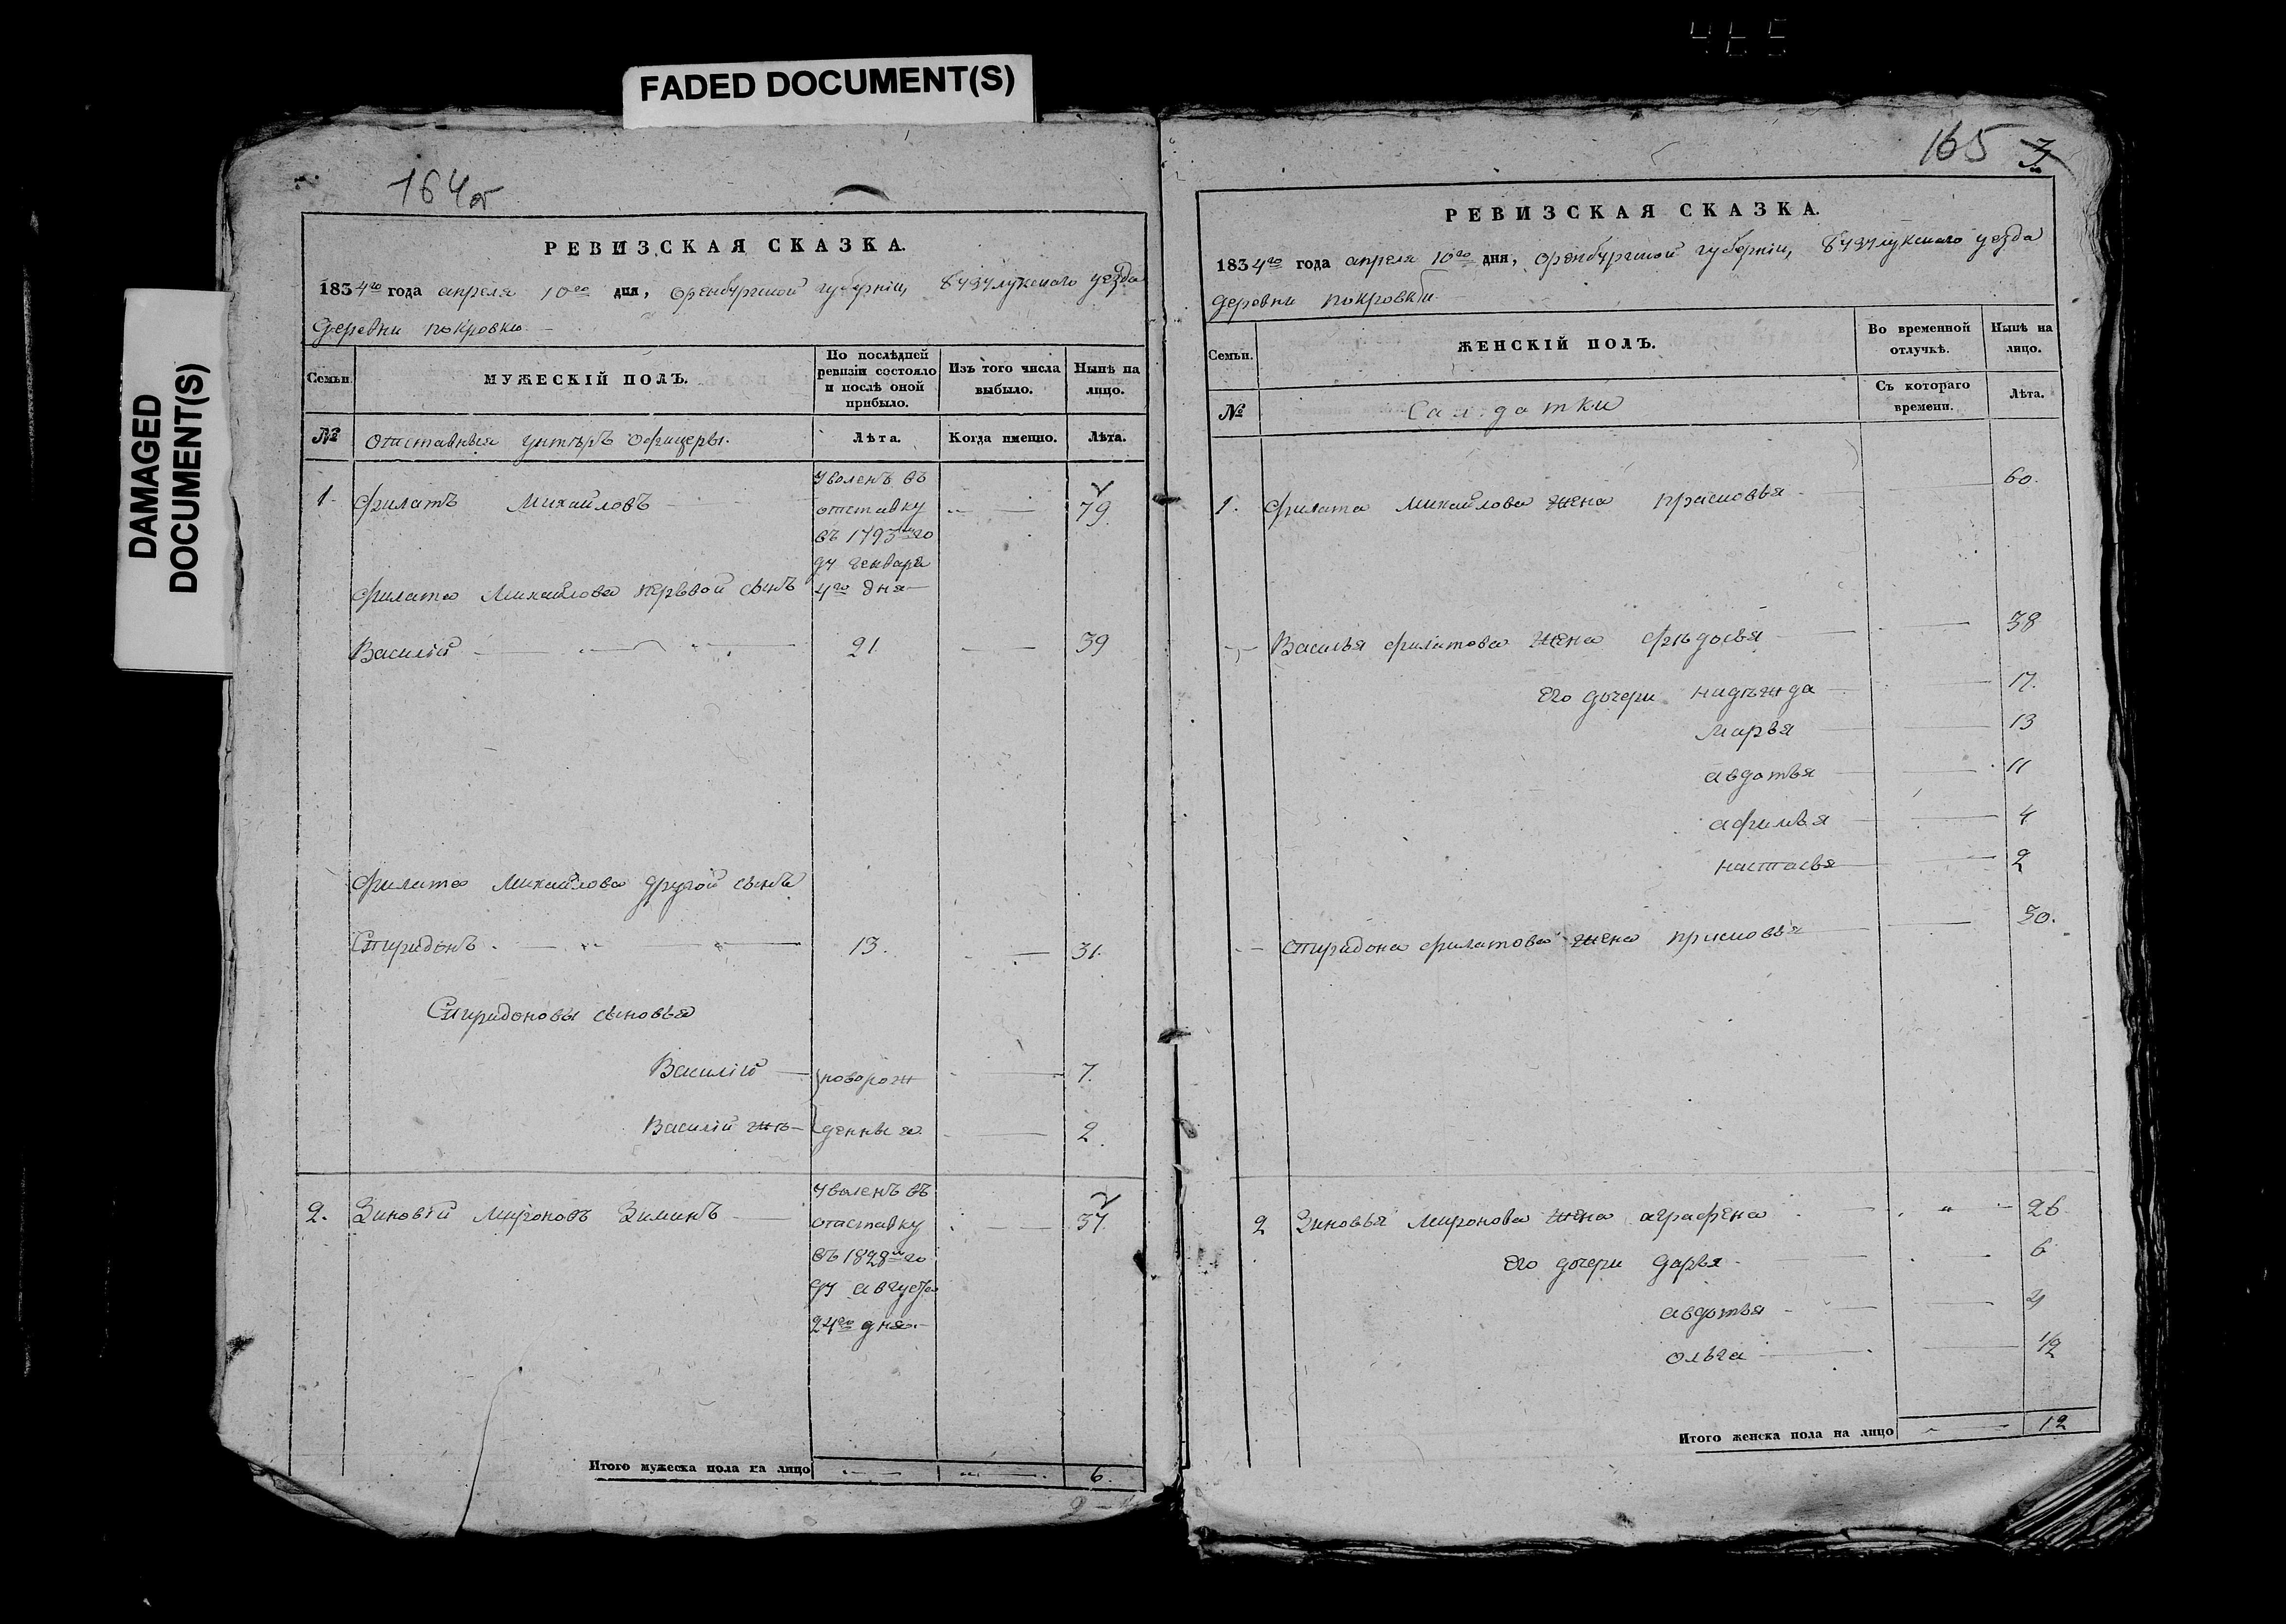 465
FADED DOCUMENT(S)
DAMAGED
DOCUMENT(S)
164об
РЕВИЗСКАЯ СКАЗКА.
1834го года апреля 10го дня, Оренбургской губернии, Бузулукского уезда
деревни покровки
Семьи.
МУЖЕСКІЙ ПОЛЪ.
По послѣдней ревизіи состояло и послѣ оной прибыло.
Изъ того числа выбыло.
Нынѣ на лицо.
№
Отставныя унтѣръ офицеры.
Лѣта.
Когда именно.
Лѣта.
1. Филатъ Михайловъ
уволенъ въ
отставку
въ 1793мъ го
ду генваря
4го дня
79
Филата Михайлова первой сынъ
Василій 21 39
Филата Михайлова другой сынъ
Спиридонъ 13. 31.
Спиридоновы сыновья
Василій новорож 7.
Василій жъ денныя 2
2. Зиновій Мироновъ Зиминъ
уволенъ въ
отставку
въ 1828м го
ду августа
24го дня.
37
Итого мужеска пола на лицо 6.
165 3
РЕВИЗСКАЯ СКАЗКА.
1834го года апреля 10го дня, Оренбургской губерніи, Бузулукского уезда
деревни покровки
Семьи.
ЖЕНСКІЙ ПОЛЪ.
Во временной отлучкѣ.
Нынѣ на лицо.
№
Салдатки
Съ котораго времени.
Лѣта.
1. Филата Михайлова жена прасковья 60.
Василья филатова жена фѣдосья 38
Его дочери надѣжда 17.
марья 13
авдотья 11
афимья 4
настасья 2
Спиридона филатова жена прасковья 30.
2 Зиновья Миронова жена аграфена 26
Его дочери дарья 6
авдотья 4
ольга 1/2
Итого женска пола на лицо 12